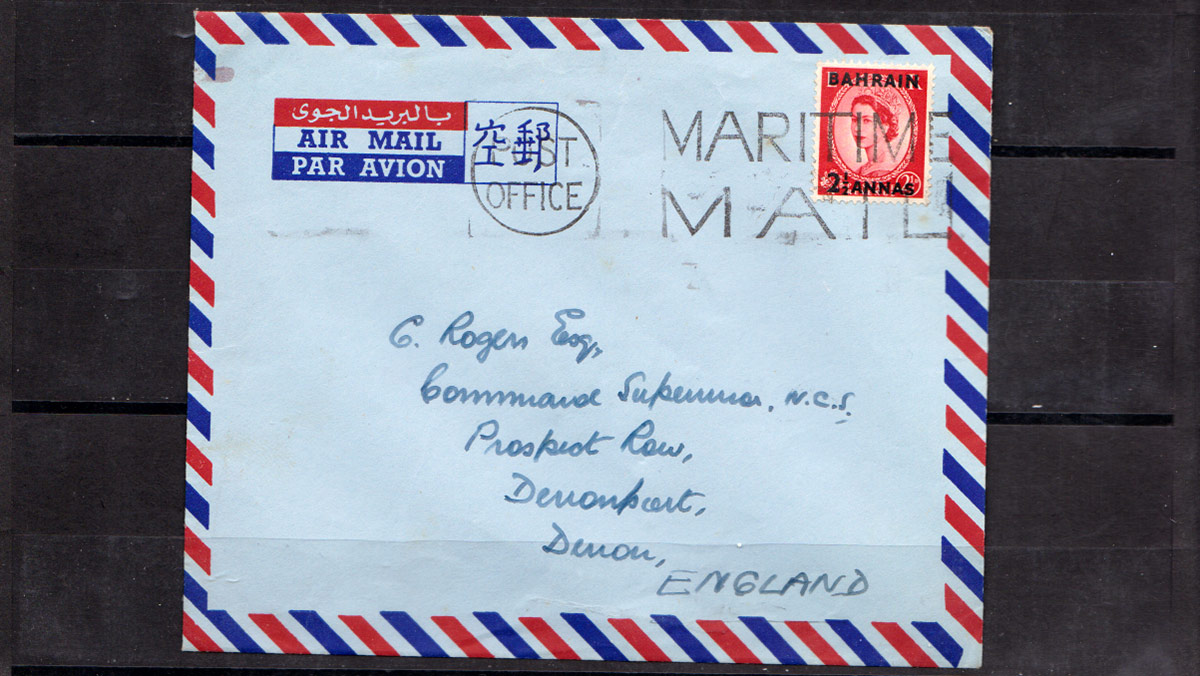 بالبريد الجوى
AIR MAIL
PAR AVION
空郵
POST
OFFICE
MARITIME
MAIL
BAHRAIN
2½ ANNAS
2½
G. Rogers Esq.,
Command Supervisor, N.C.S.
Prospect Row,
Devonport,
Devon,
ENGLAND